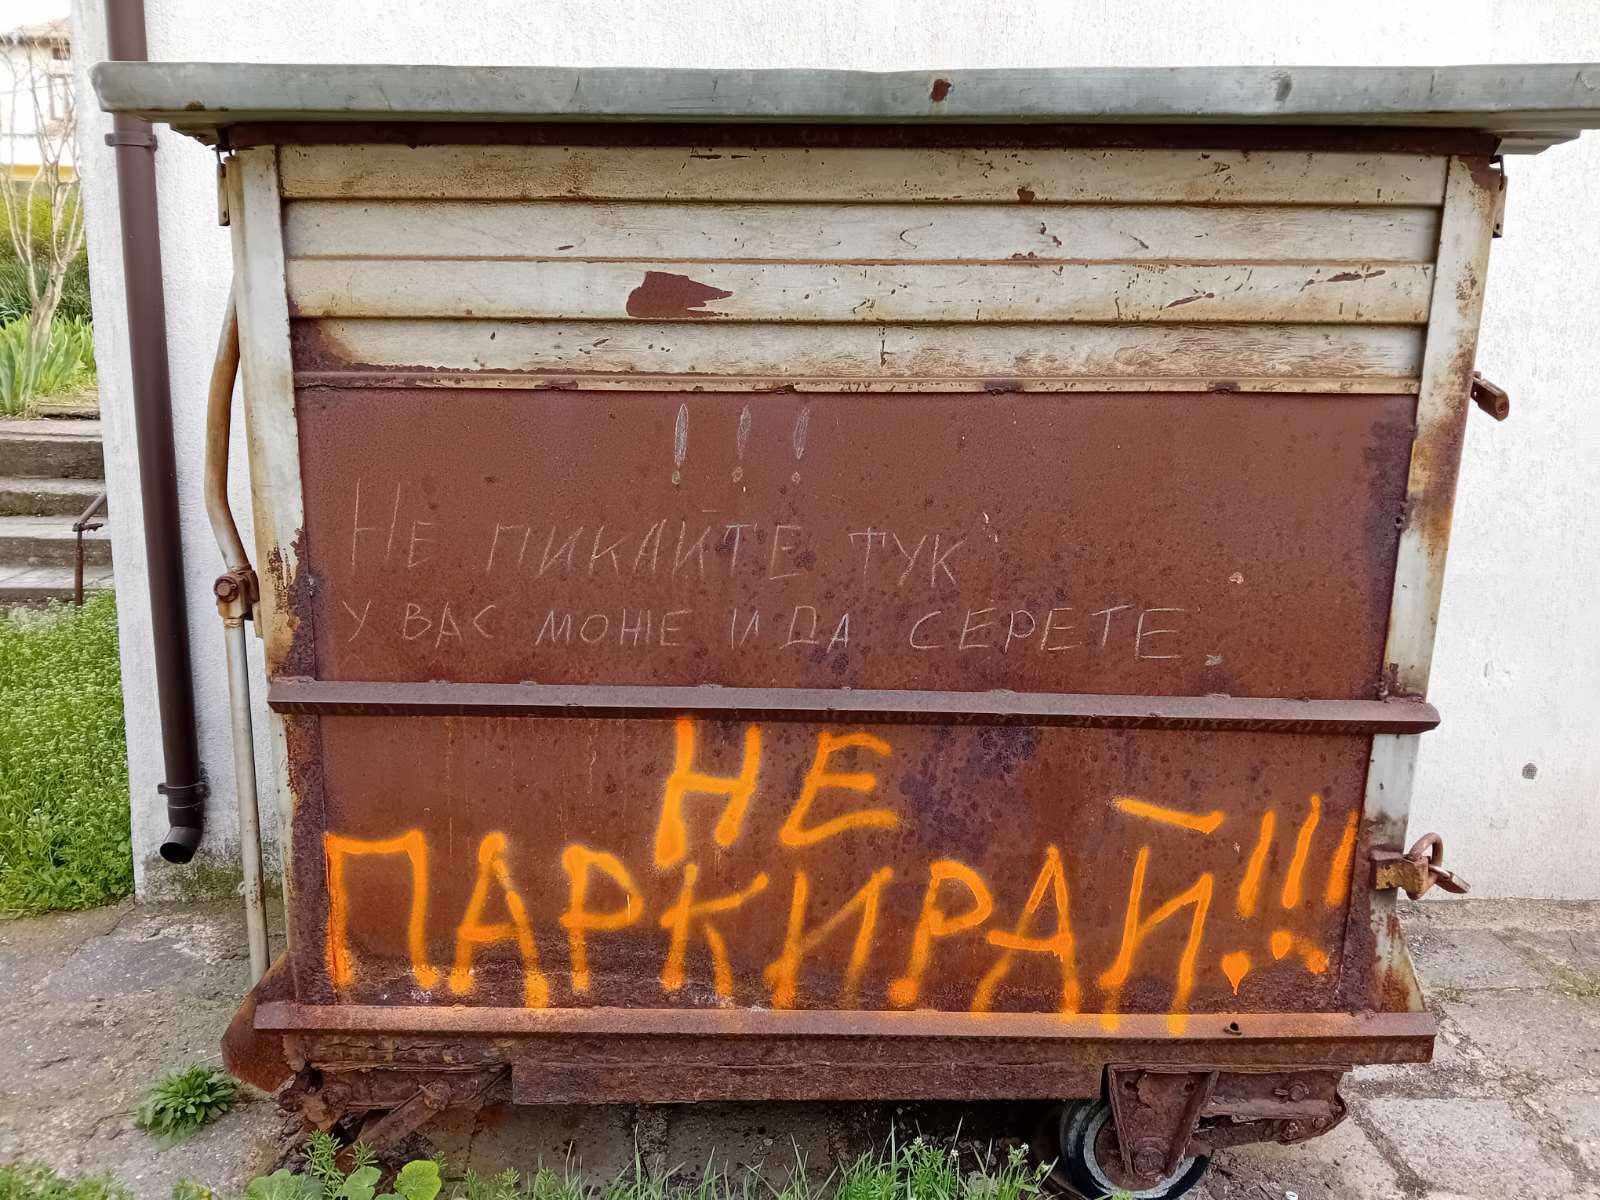 !!!
Не пикайте тук
У вас може и да серете.
НЕ
ПАРКИРАЙ!!!